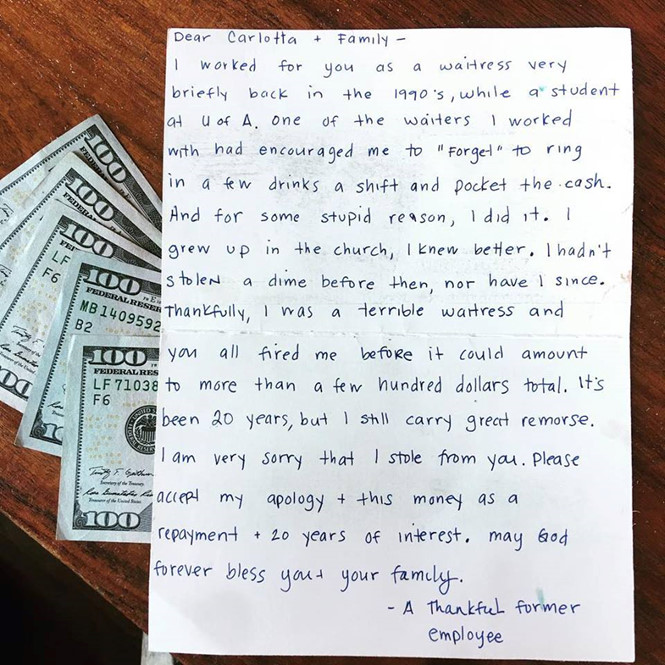 Dear Carlotta + Family -
I worked for you as a waitress very
briefly back in the 1990's, while a student
at U of A. One of the waiters I worked
with had encouraged me to "Forget" to ring
in a few drinks a shift and pocket the cash.
And for some stupid reason, I did it. I
grew up in the church, I knew better. I hadn't
stolen a dime before then, nor have I since.
Thankfully, I was a terrible waitress and
you all fired me before it could amount
to more than a few hundred dollars total. It's
been 20 years, but I still carry great remorse.
I am very sorry that I stole from you. Please
accept my apology + this money as a
repayment + 20 years of interest. may God
forever bless you + your family.
- A Thankful former
employee
100
FEDERAL
100
FEDERAL
100
LF
F6
100
FEDERAL RESER
MB 1409592
B2
100
FEDERAL RESER
LF 71038
F6
Secretary of the Treasury
Treasurer of the United States
100